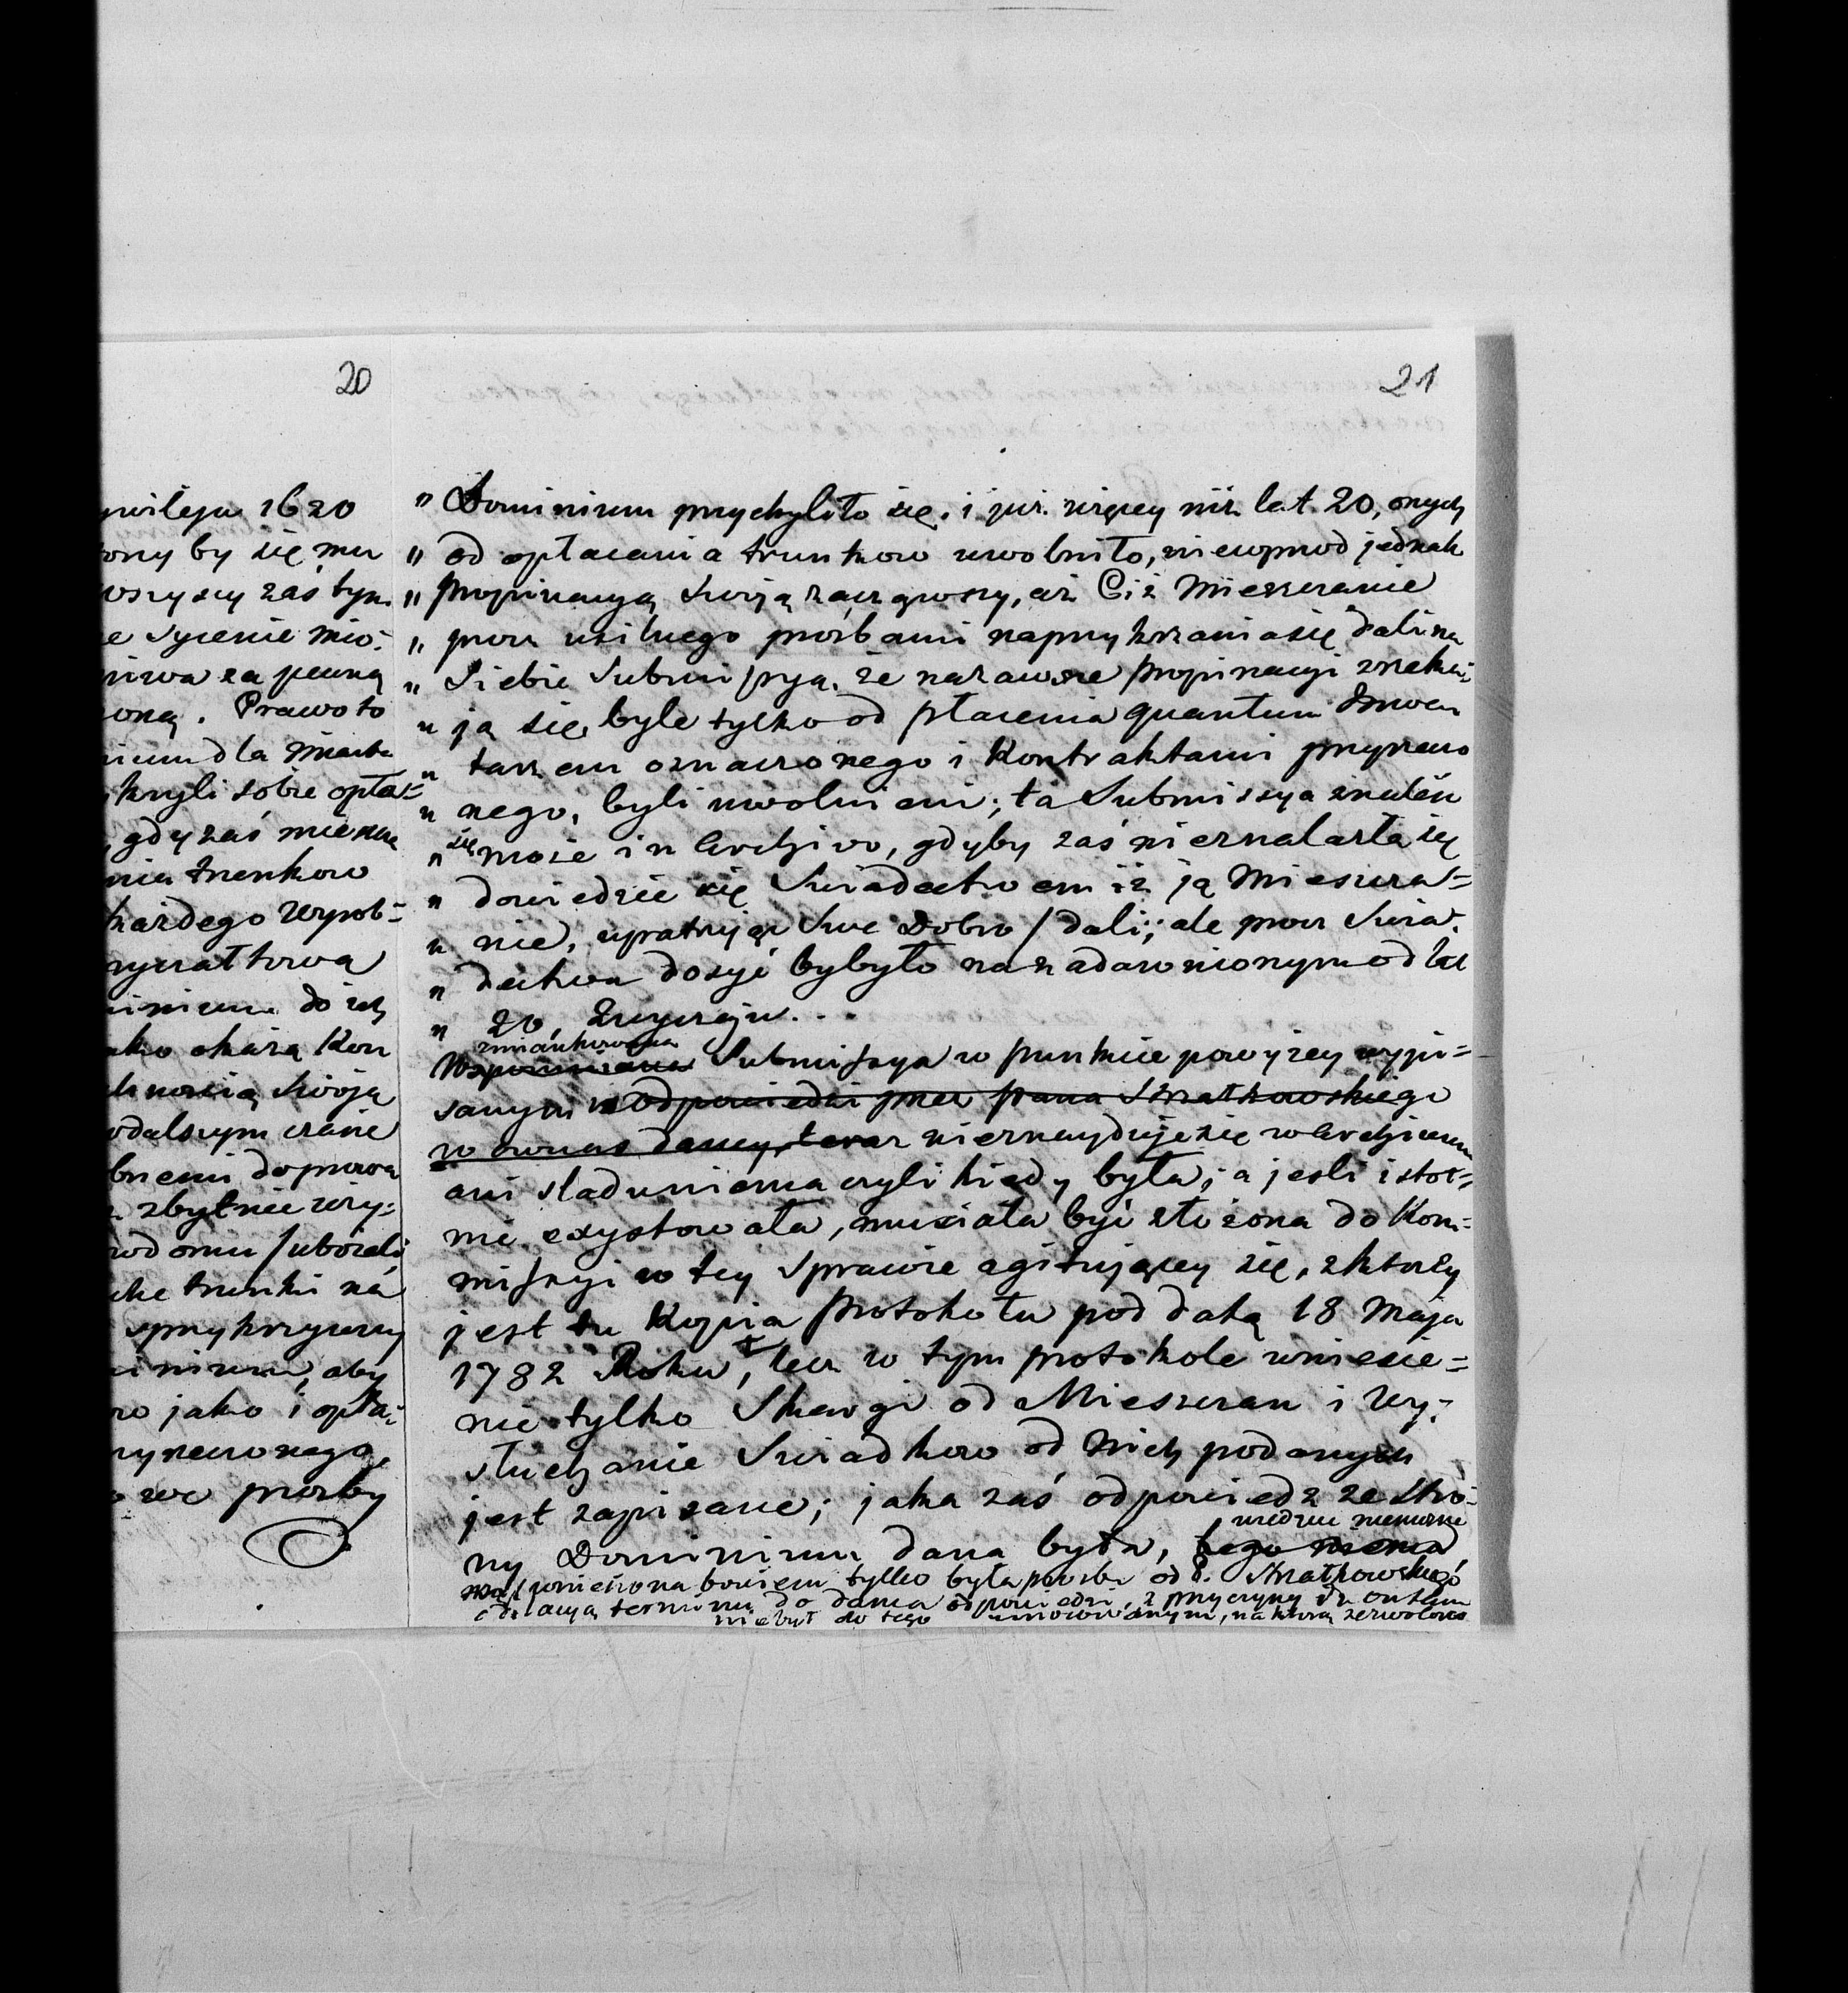 20
ywileju 1620
ony by się mu
wszyscy zaś tym
e sycenie mio=
piwa za pewną
oną. Prawo to
nium dla Miasta
kryli sobie opła=
, gdy zaś miesz
nia trunkow
każdego wyrob=
inium do
ako okarą Kon
lnością swoją
odalszym czasie
bnemi do
zbytnie wry=
rodomu / ubozeli
kie trunki na
sprzykrzywszy
inium, aby
o jako i opła=
rzyneconego,
we prosby
21
" Dominium przychyliło się, i już więcey niż lat 20, onych
" od opłacania trunkow uwolniło, niewprzod jednak
" propinacyą swoją zacząwszy, aż Ciż Mieszczanie
" przez usilnego prośbami naprzykrzania się dali na
" Siebie Submissyą, że na zawsze propinacyi zrzeka=
" ją się, byle tylko od płacenia quantum Inwen
" tarzem oznaczonego i Kontraktami przyrzeczo
" nego, byli uwolnieni; ta Submissya znaleść
" się może in Archivo, gdyby zaś nieznalazła się
" dowiedzie się Swiadectwem iż ją Mieszcza=
" nie, upatrując Swe Dobro / dali; ale procz Swia=
" dectwa dosyć by było na zadawnionym od lat
" 20, Zwyczaju...
zmiankowana
Wspomniana Submissya w punkcie powyżey wypi=
sanym w odpowiedzi przez pana Kwatkowskiego
w owczas daney, teraz nieznayduje się w Archivum
ani sladu niema czyli kiedy była; a jesli istot=
nie exystowała, musiała być złożona do Kom=
missyi w tey Sprawie agitującey się, z ktorey
jest tu Kopia Protokołu pod datą 18 Maja
1782 Roku, lecz w tym protokole wniesie=
nie tylko Skargi od Mieszczan i Wy=
słuchanie Swiadkow od Nich podanych
jest zapisane; jaka zaś odpowiedz ze Stro=
wiedzieć niemożna
ny Dominium dana była, tego niema
wniesiona bowiem tylko była prosba od P. Kwatkowskiego
o dylacyą terminu do dania odpowiedzi, z przyczyny że on sam
niebył do tego umocowanym, na ktorą zezwolono